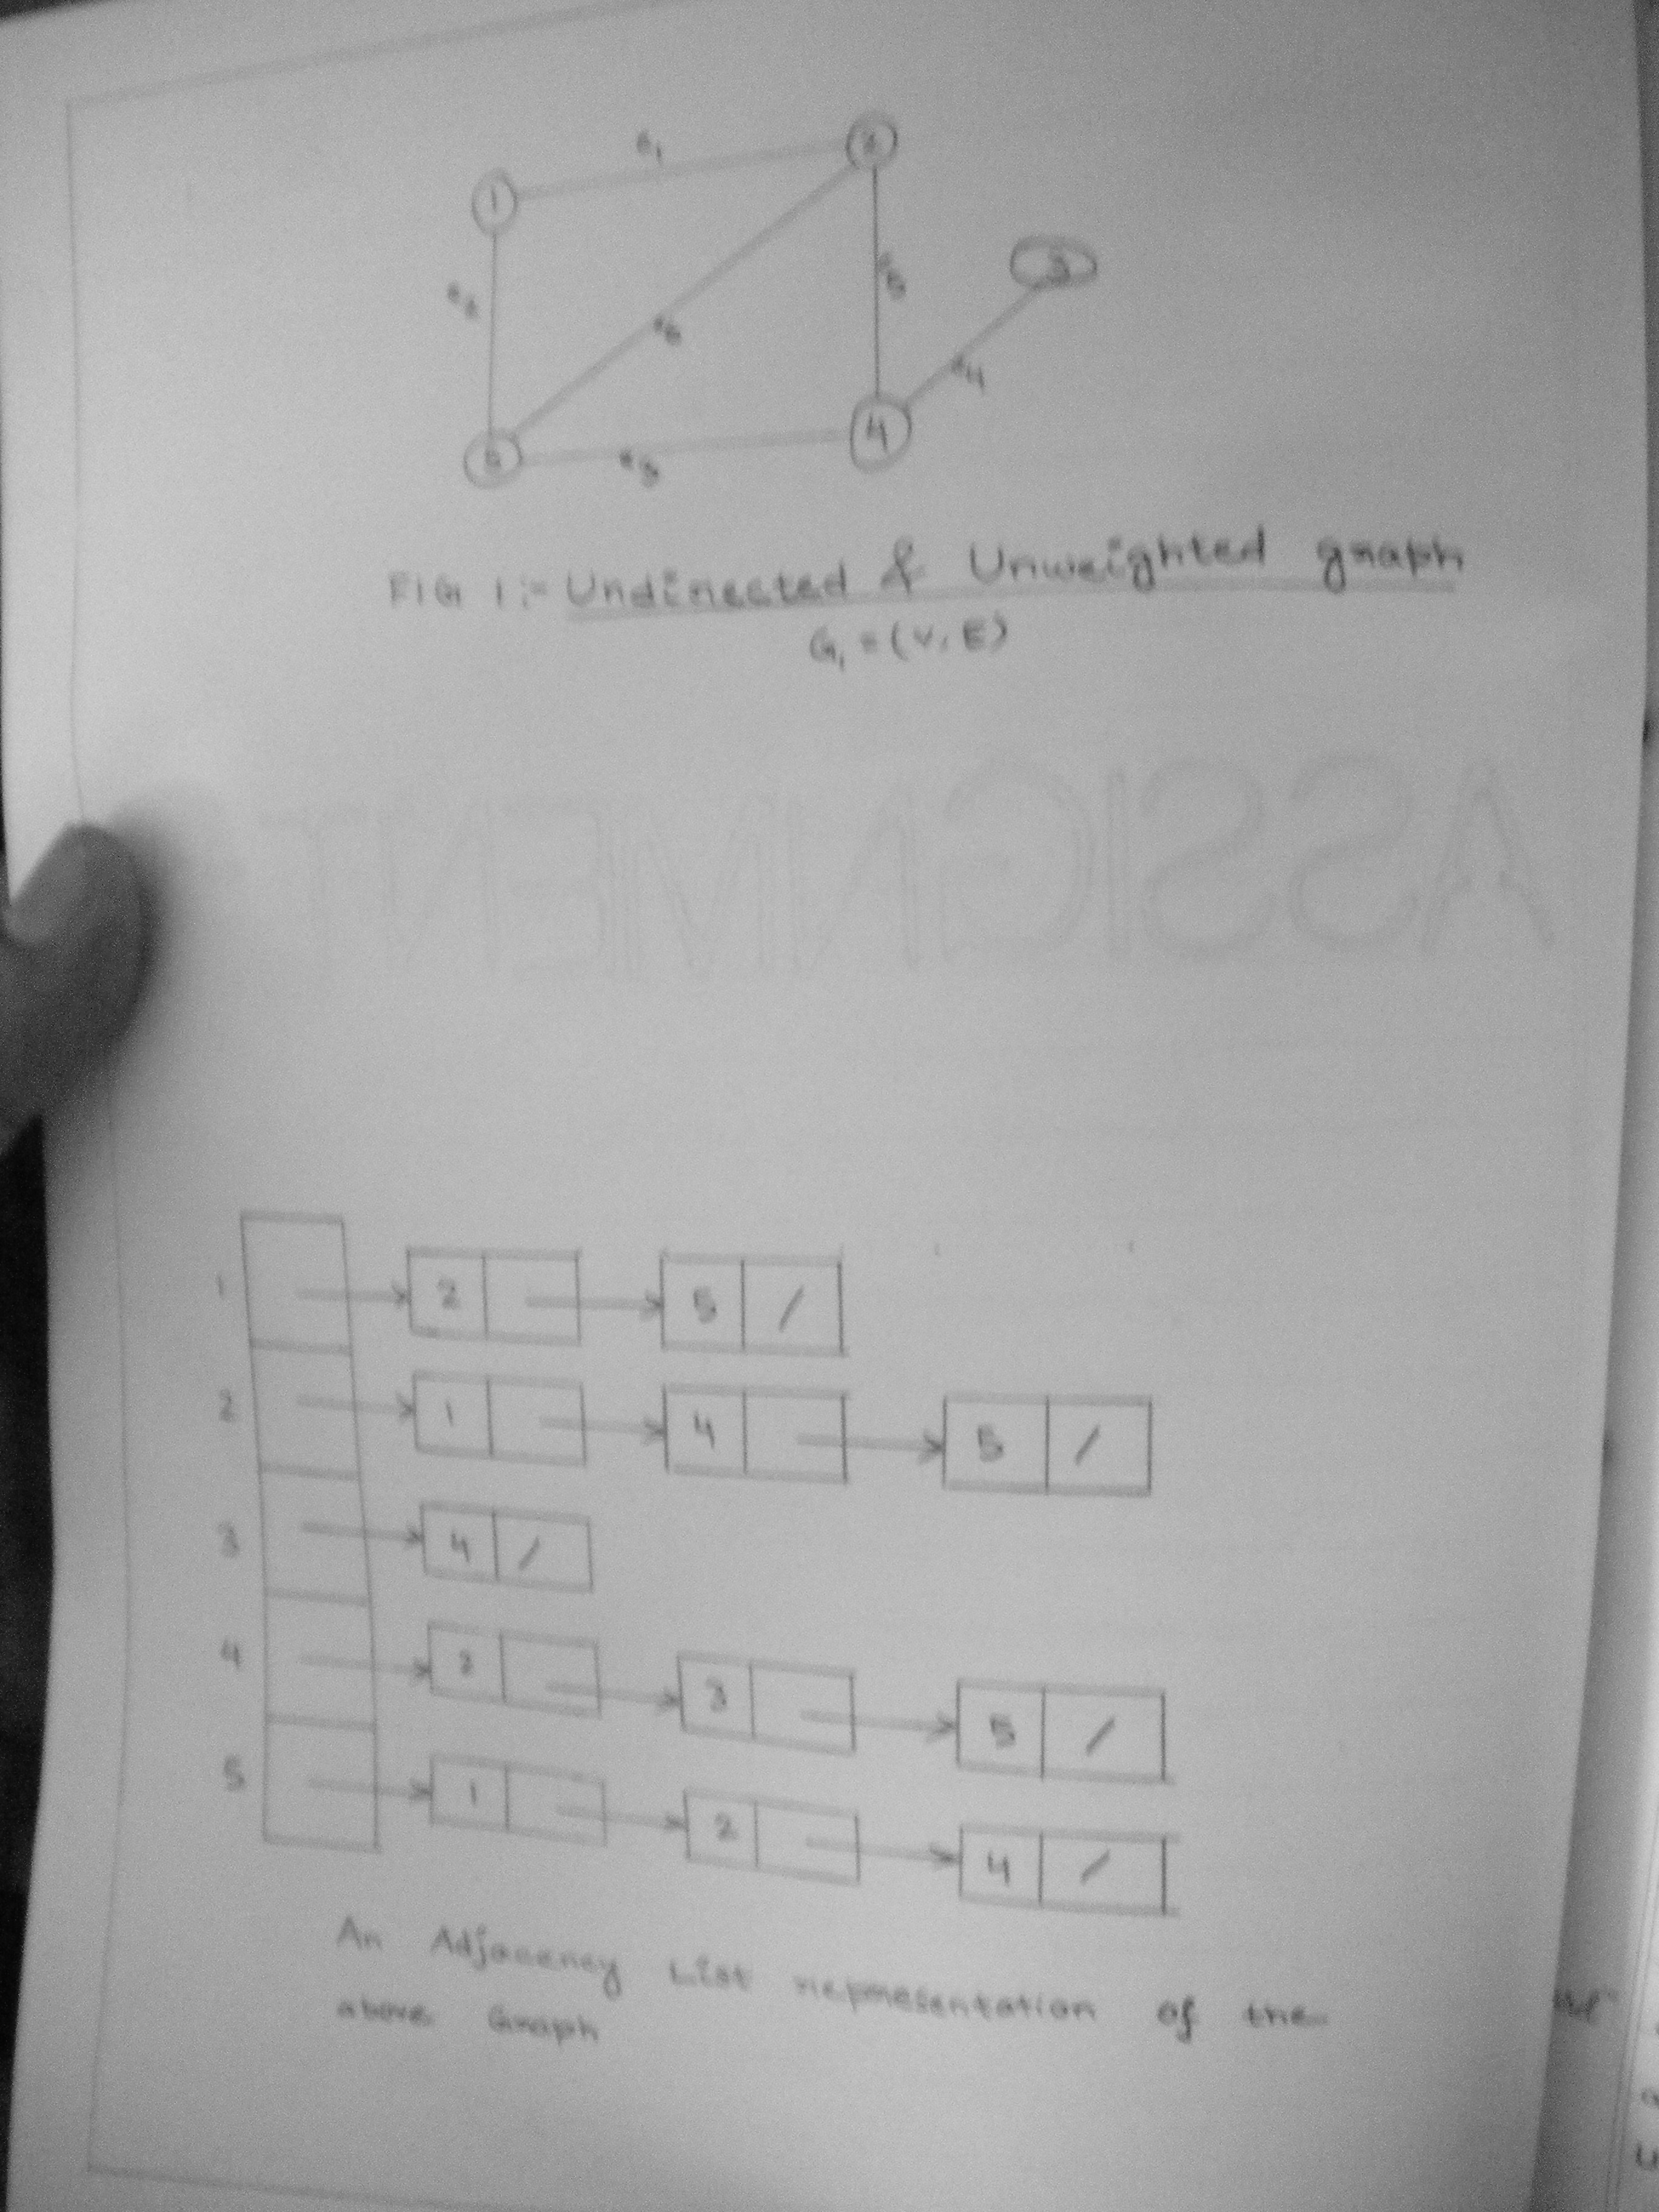 e1
1
2
e2
e5
3
e6
e4
4
5
FIG 1:- Undirected & Unweighted graph
G1 = (V, E)
ASSIGNMENT
1 2 5 /
2 1 4 5 /
3 4 /
4 2 3 5 /
5 1 2 4 /
An Adjacency List representation of the
above Graph